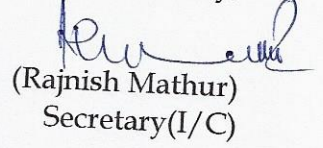 (Rajnish Mathur)
Secretary(I/C)